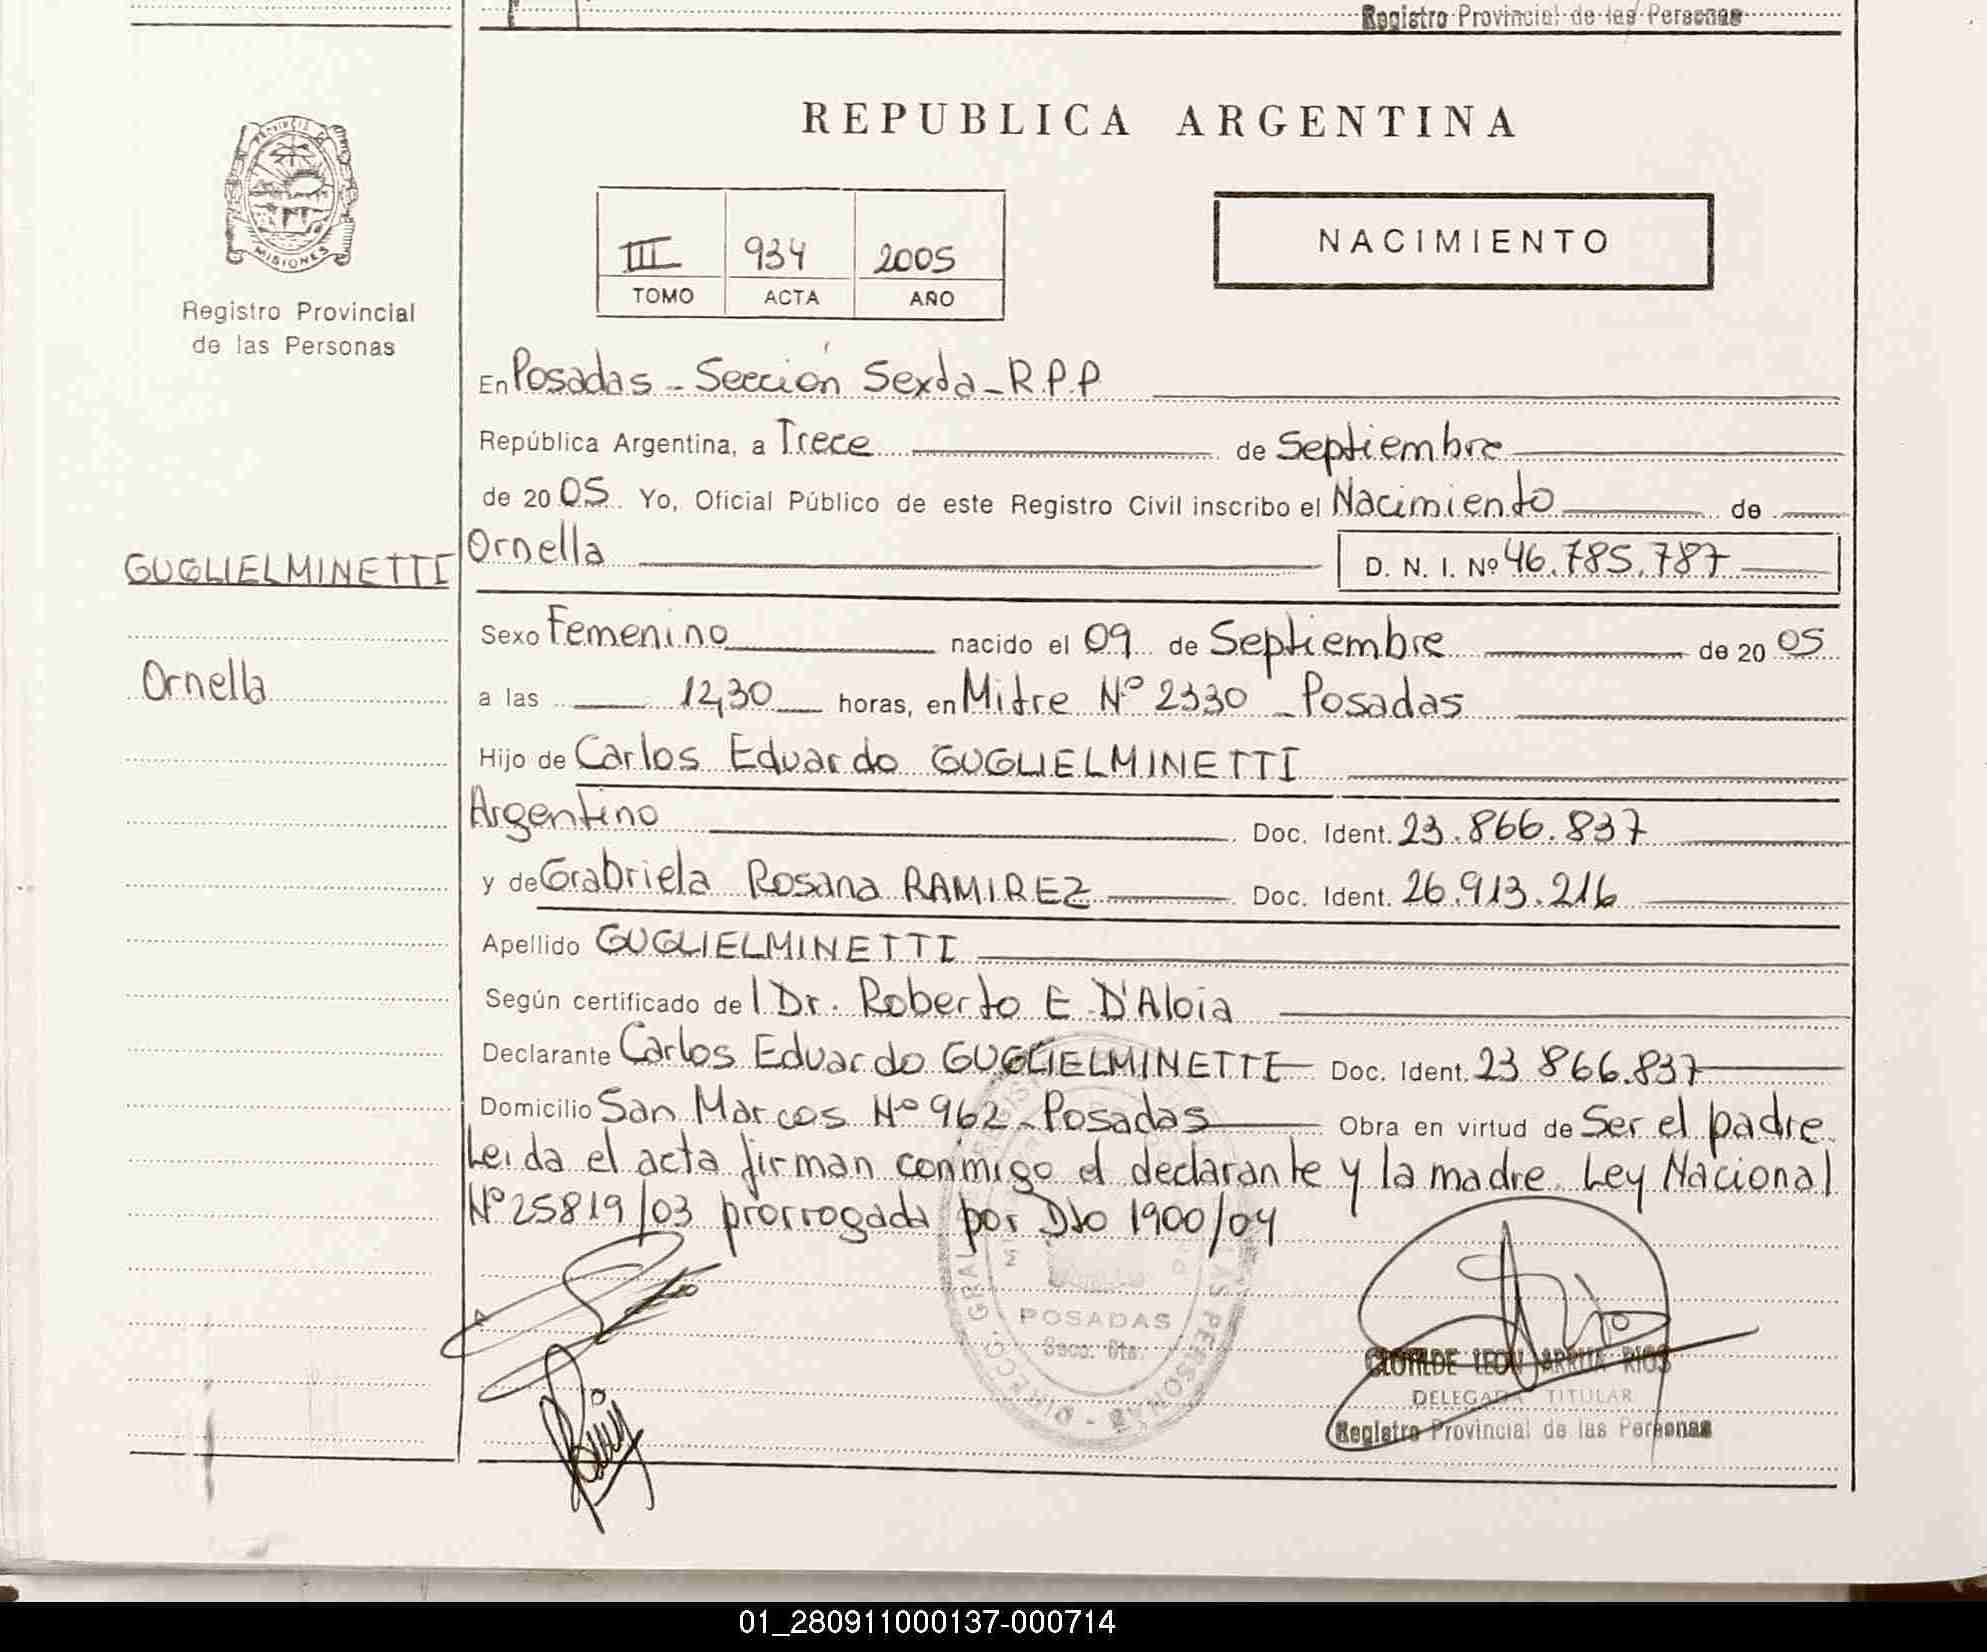 Registro Provincial de las Personas
PROVINCIA DE
MISIONES
Registro Provincial
de las Personas
REPUBLICA ARGENTINA
III 934 2005
TOMO ACTA AÑO
NACIMIENTO
En Posadas - Sección Sexta - R.P.P
República Argentina, a Trece de Septiembre
de 20 05 Yo, Oficial Público de este Registro Civil inscribo el Nacimiento de
GUGLIELMINETTI
Ornella D. N. I. Nº 46.785.787
Sexo Femenino nacido el 09 de Septiembre de 20 05
Ornella
a las 12,30 horas, en Mitre Nº 2330 - Posadas
Hijo de Carlos Eduardo GUGLIELMINETTI
Argentino Doc. Ident. 23.866.837
y de Grabriela Rosana RAMIREZ Doc. Ident. 26.913.216
Apellido GUGLIELMINETTI
Según certificado de l Dr. Roberto E. D'Aloia
Declarante Carlos Eduardo GUGLIELMINETTI Doc. Ident. 23.866.837
Domicilio San Marcos Nº 962 - Posadas Obra en virtud de Ser el padre.
Leida el acta firman conmigo el declarante y la madre. Ley Nacional
Nº 25819/03 prorrogada por Dto 1900/04
POSADAS
Secc. 6ta.
CLOTILDE LEON ARRUA RIOS
DELEGADA TITULAR
Registro Provincial de las Personas
01_280911000137-000714